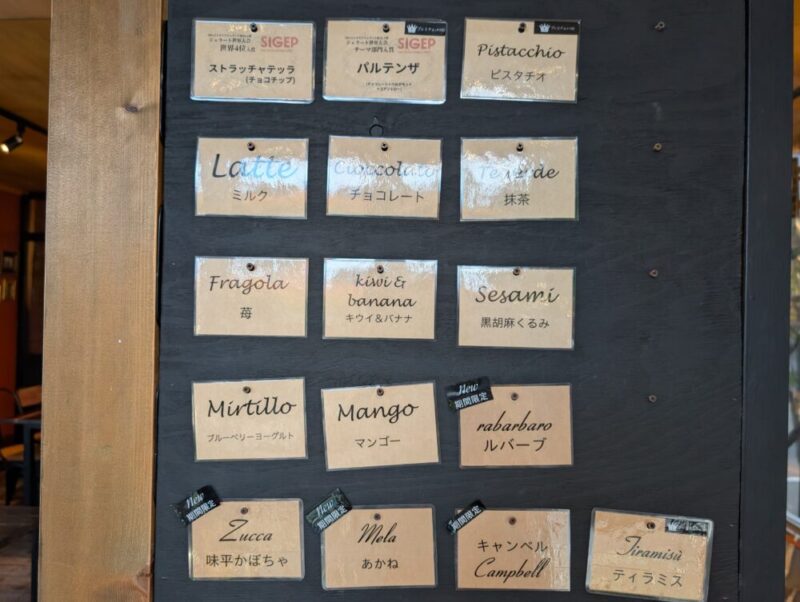 世界4位入賞
SIGEP
ストラッチャテッラ
(チョコチップ)
テーマ部門入賞
SIGEP
パルテンザ
Pistacchio
ピスタチオ
Latte
ミルク
Cioccolato
チョコレート
Te verde
抹茶
Fragola
苺
kiwi &
banana
キウイ&バナナ
Sesami
黒胡麻くるみ
Mirtillo
ブルーベリーヨーグルト
Mango
マンゴー
New
期間限定
rabarbaro
ルバーブ
New
期間限定
Zucca
味平かぼちゃ
New
期間限定
Mela
あかね
New
期間限定
キャンベル
Campbell
Tiramisù
ティラミス